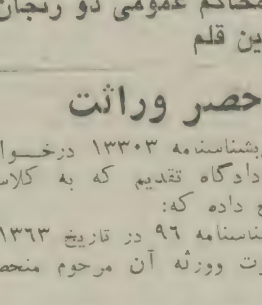 محاکم عمومی دو زنجان
ین قلم
حصر وراثت
بشناسنامه ۱۳۳۰۳ درخوا
دادگاه تقدیم که به کلاس
ح داده که:
شناسنامه ۹۶ در تاریخ ۱۳۶۳
ت وورثه آن مرحوم منحص